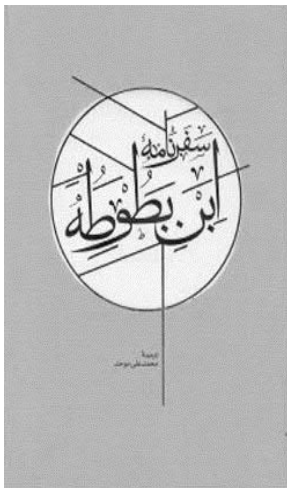 سفرنامهٔ
ابن بطوطه
ترجمهٔ
محمدعلی موحد